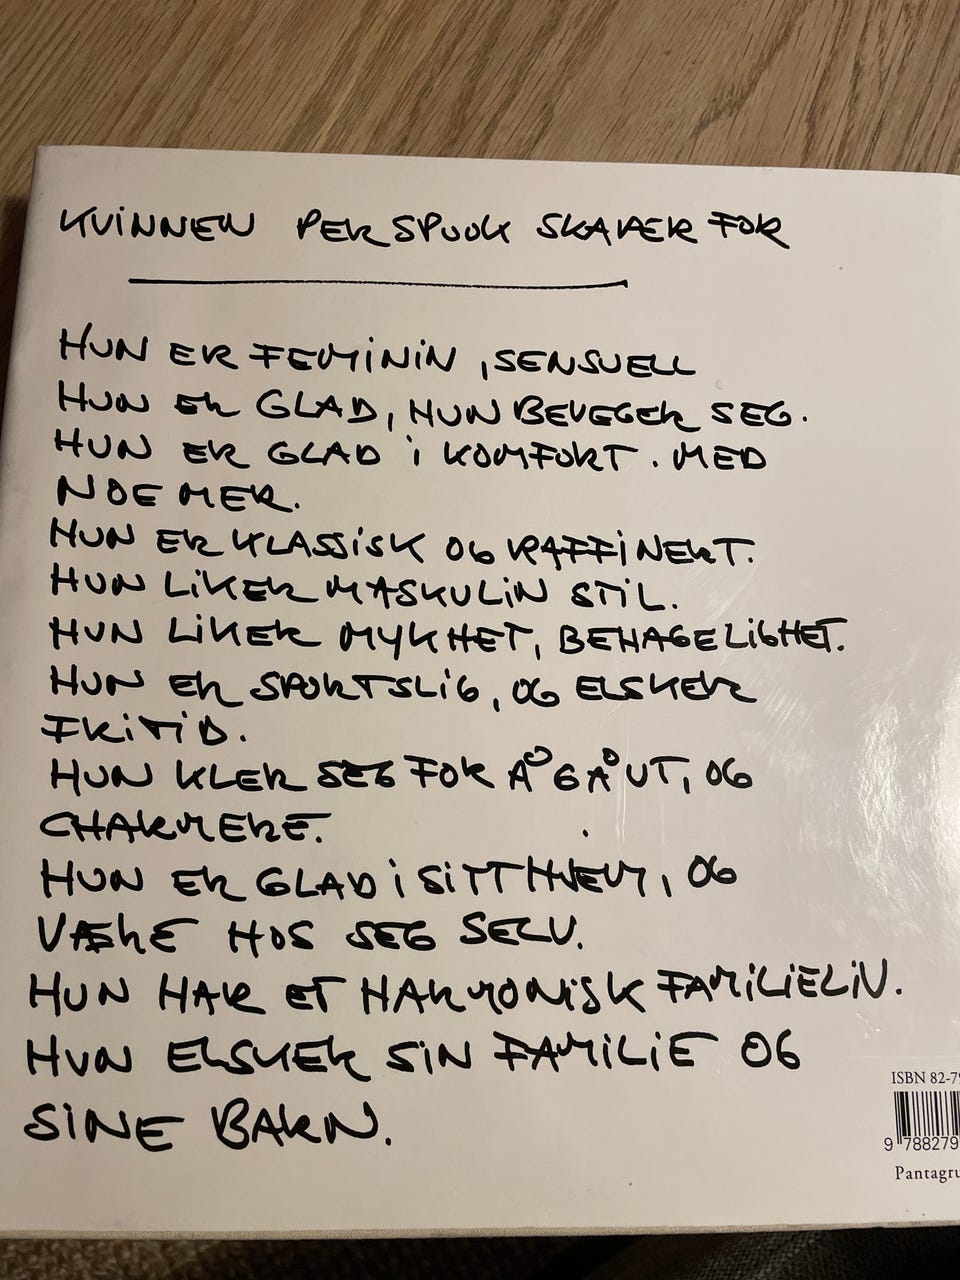 KVINNEN PER SPOOK SKAPER FOR
HUN ER FEMININ, SENSUELL
HUN ER GLAD, HUN BEVEGER SEG.
HUN ER GLAD i KOMFORT. MED
NOE MER.
HUN ER KLASSISK OG RAFFINERT.
HUN LIKER MASKULIN STIL.
HUN LIKER MYKHET, BEHAGELIGHET.
HUN ER SPORTSLIG, OG ELSKER
FRITID.
HUN KLER SEG FOR Å GÅ UT, OG
CHARMERE.
HUN ER GLAD i SITT HJEM, OG
VÆRE HOS SEG SELV.
HUN HAR ET HARMONISK FAMILIELIV.
HUN ELSKER SIN FAMILIE OG
SINE BARN.
ISBN 82-79
9 788279
Pantagru